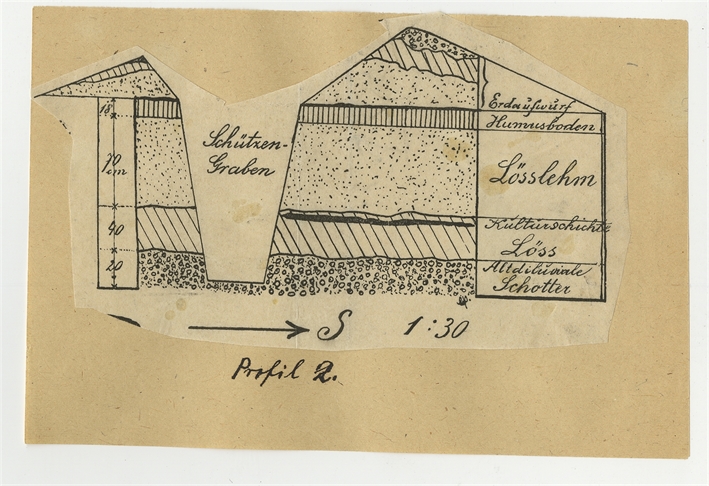 Schützen-
Graben
18
70
cm
40
20
Erdaufwurf
Humusboden
Lösslehm
Kulturschichte
Löss
Altdiluviale
Schotter
S 1:30
Profil 2.